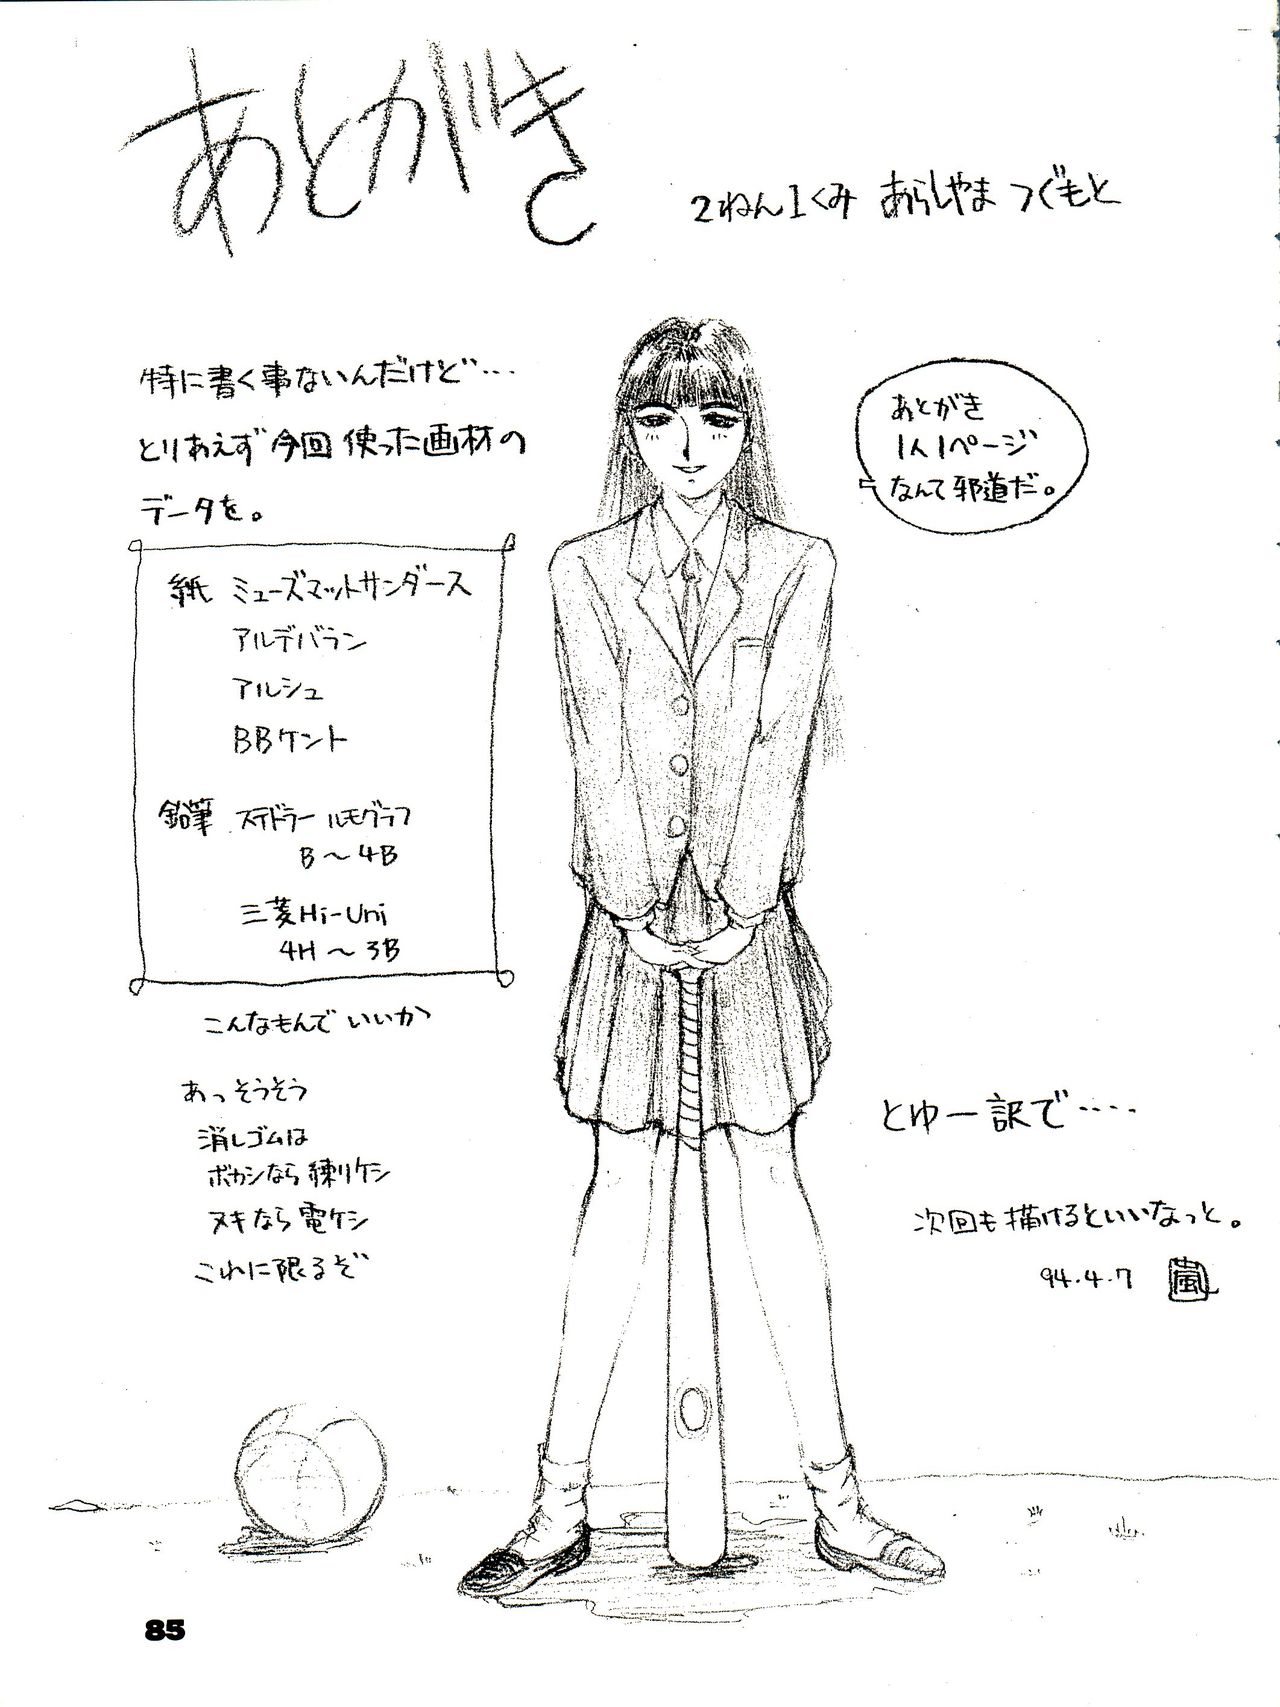 あとがき
2ねん1くみ あらしやま つぐもと
特に書く事ないんだけど…
とりあえず今回使った画材の
データを。
紙 ミューズマットサンダース
アルデバラン
アルシュ
BBケント
鉛筆 ステドラー ルモグラフ
B～4B
三菱Hi-Uni
4H～3B
こんなもんでいいか
あっそうそう
消しゴムは
ボカシなら練りケシ
ヌキなら電ケシ
これに限るぞ
あとがき
1人1ページ
なんて邪道だ。
とゆー訳で‥‥
次回も描けるといいなっと。
94.4.7 嵐
85